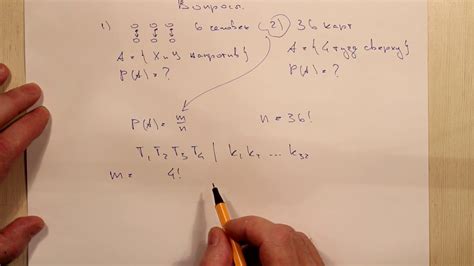 Вопросы.
1) 6 человек 2) 36 карт
A = { X и Y напротив} A = {4 туза сверху}
P(A) = ? P(A) = ?
P(A) = m/n n = 36!
T₁ T₂ T₃ T₄ | k₁ k₂ ... k₃₂
m = 4!